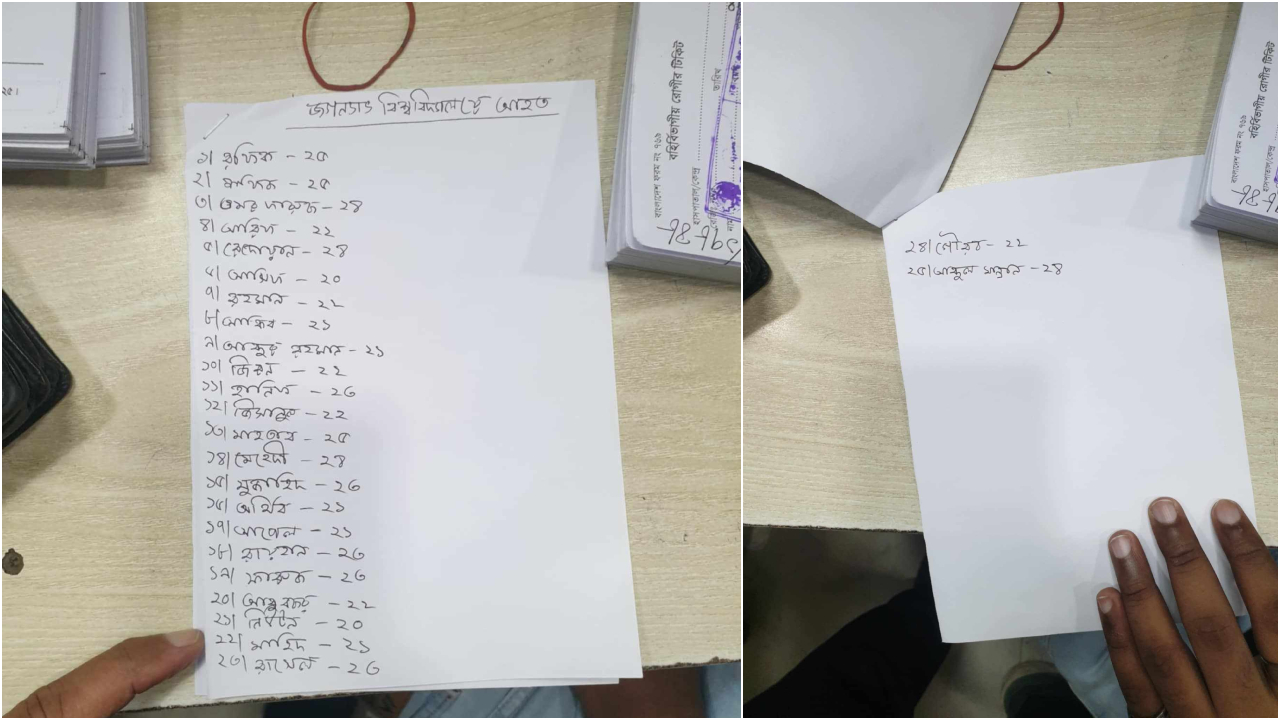 জগন্নাথ বিশ্ববিদ্যালয়ে আহত
১। রফিক - ২৫
২। শফিক - ২৫
৩। ওমর ফারুক - ২৪
৪। আরিফ - ২২
৫। রেদোয়ান - ২৪
৬। আসিফ - ২০
৭। রহমান - ২২
৮। আকিব - ২১
৯। আব্দুর রহমান - ২১
১০। জিবন - ২২
১১। হানিফ - ২৩
১২। জিসানুল - ২২
১৩। মাহতাব - ২৫
১৪। মেহেদী - ২৪
১৫। মুজাহিদ - ২৩
১৬। অর্থিব - ২১
১৭। আপেল - ২১
১৮। রায়হান - ২৩
১৯। ফারুক - ২৩
২০। আবুবকর - ২২
২১। নিউটন - ২০
২২। শাহিদ - ২১
২৩। রাসেল - ২৩
২৪। সৌরভ - ২২
২৫। আব্দুল মান্নান - ২৪
বহির্বিভাগীয় রোগীর টিকিট
তারিখ
বহির্বিভাগীয় রোগীর টিকিট